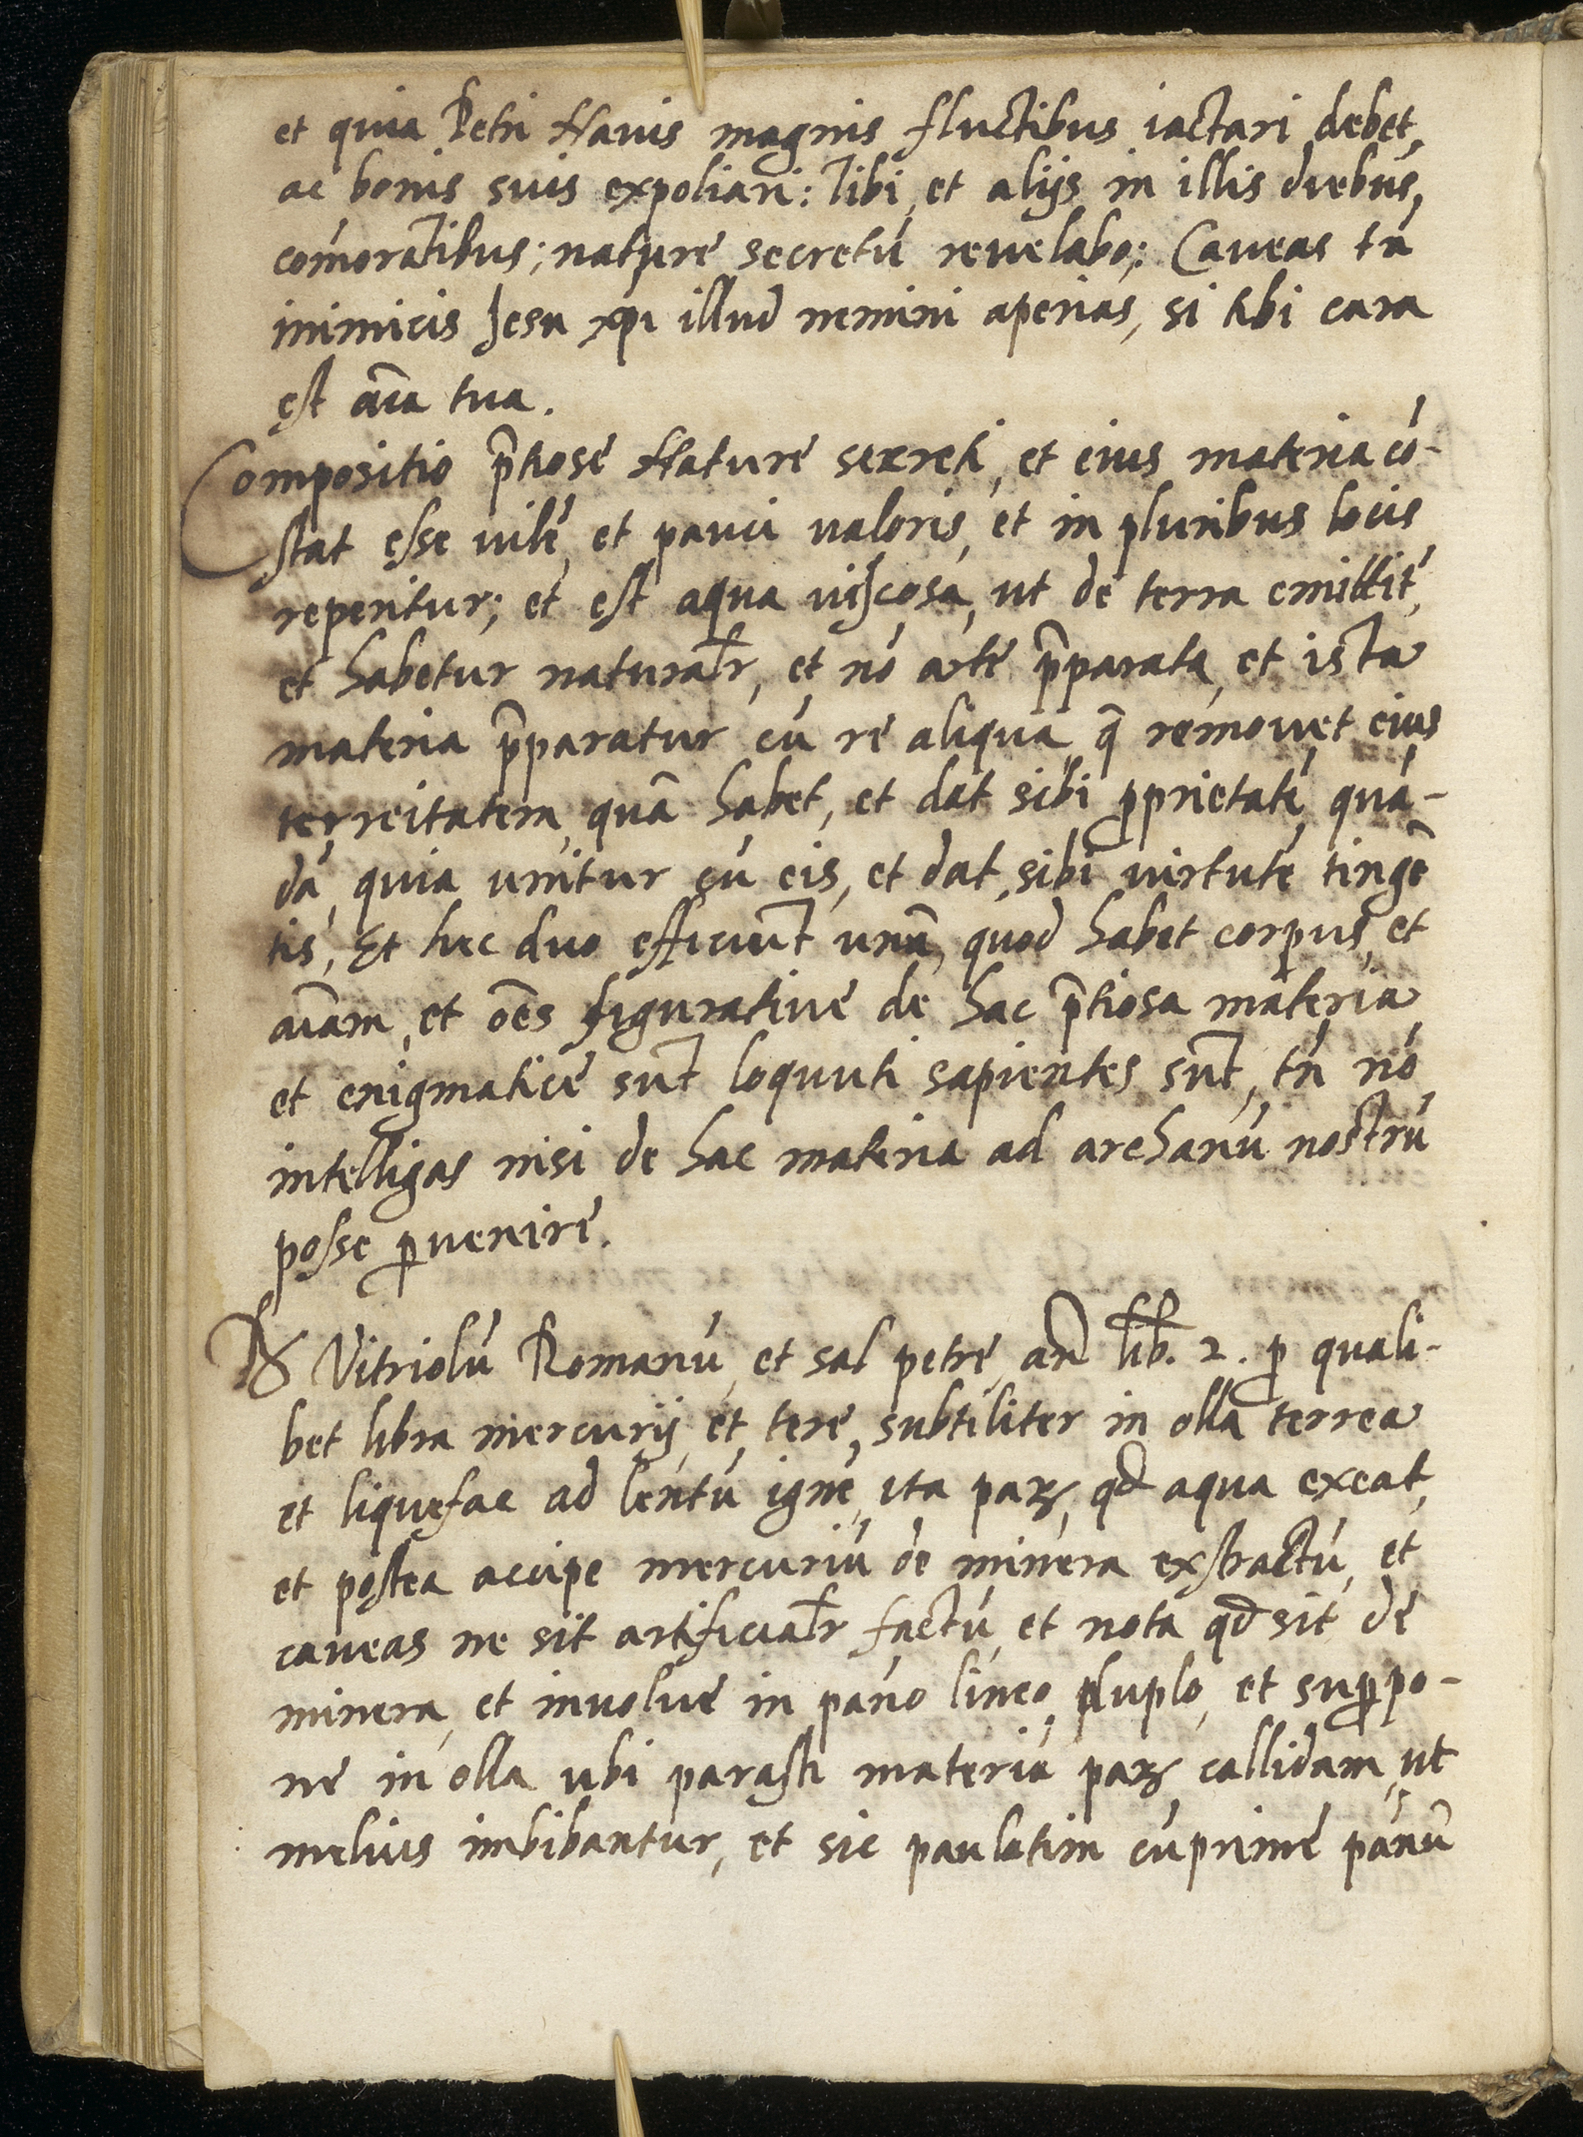 et quia Petri Nauis magnis fluctibus iactari debet,
ac bonis suis expoliari: Tibi, et alijs in illis diebus,
cōmorātibus; nature secretū reuelabo; Caveas tn̄
inimicis Jesu xp̄i illud nemini aperias, si tibi cara
est aīa tua.
Compositio p̄tiose Nature secreti, et eius materia cō-
stat esse vilē, et pauci valoris, et in pluribus locis
reperitur; et est aqua viscosa, ut de terra emittit,
et habetur naturalr̄, et nō arte p̄parata, et ista
materia p̄paratur cū re aliqua, q̄ remouet eius
terreitatem, quā habet, et dat sibi ꝓprietatē quā-
dā, quia unitur cū eis, et dat sibi virtutē tingē
tis, Et hec duo efficiūt unū, quod habet corpus, et
aīam, et oēs figuratiue de hac p̄tiosa materia
et enigmatice sūt loquuti sapientes sūt, tn̄ nō
intelligas nisi de hac materia ad archanū nostrū
posse ꝑvenire.
℞ Vitriolū Romanū, et sal petre, an̄ lib. 2. ꝑ quali-
bet libra mercurij, et tere, subtiliter in olla terrea
et liquefac ad lentū ignē, ita paꝝ, qd̄ aqua exeat,
et postea accipe mercuriū de minera exstractū, et
caveas ne sit artificialr̄ factū, et nota qd̄ sit de
minera, et involue in pāno lineo, duplo, et suꝑpo-
ne in olla ubi parasti materiā paꝝ callidam, ut
melius imbibantur, et sic paulatim cūprime pānū